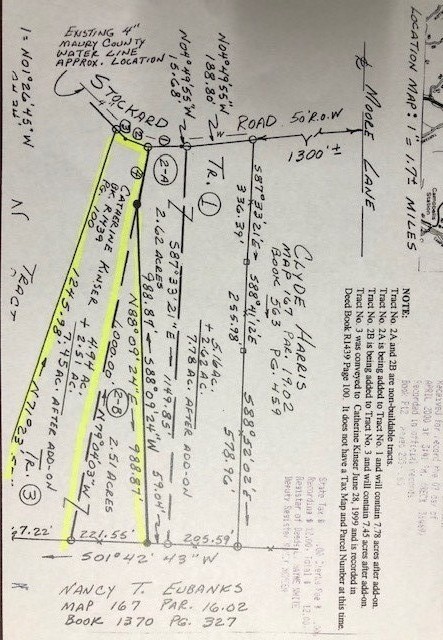 LOCATION MAP: 1" = 1.7± MILES
NOTE:
Tract No. 2A and 2B are non-buildable tracts.
Tract No. 2A is being added to Tract No. 1 and will contain 7.78 acres after add-on.
Tract No. 2B is being added to Tract No. 3 and will contain 7.45 acres after add-on.
Tract No. 3 was conveyed to Catherine Kinser June 28, 1999 and is recorded in
Deed Book R1439 Page 100. It does not have a Tax Map and Parcel Number at this time.
℄ NOOLE LANE
1300'±
STOCKARD ROAD 50' R.O.W
EXISTING 4"
MAURY COUNTY
WATER LINE
APPROX. LOCATION
N04°49'55"W
188.80'
N04°49'55"W
15.68'
1 = N01°26'45"W
CLYDE HARRIS
MAP 167 PAR. 19.02
BOOK 563 PG. 459
S87°33'21"E
336.39'
S88°41'12"E
255.98'
S88°52'02"E
578.96'
TR. 1
5.16 AC.
+ 2.62 AC.
7.78 AC. AFTER ADD-ON
S87°33'21"E 1149.85'
2-A
2.62 ACRES
988.87' S88°09'24"E
59.04'
N88°09'24"W 988.87'
2-B 2.51 ACRES
1000.00' N79°04'07"W
CATHERINE KINSER
BK. R1439
PG. 100
4.94 AC.
+ 2.51 AC.
7.45 AC. AFTER ADD-ON
TR. 3
1245.98'
TRACT
7.22'
221.55'
205.59'
S01°42'43"W
NANCY T. EUBANKS
MAP 167 PAR. 16.02
BOOK 1370 PG. 327